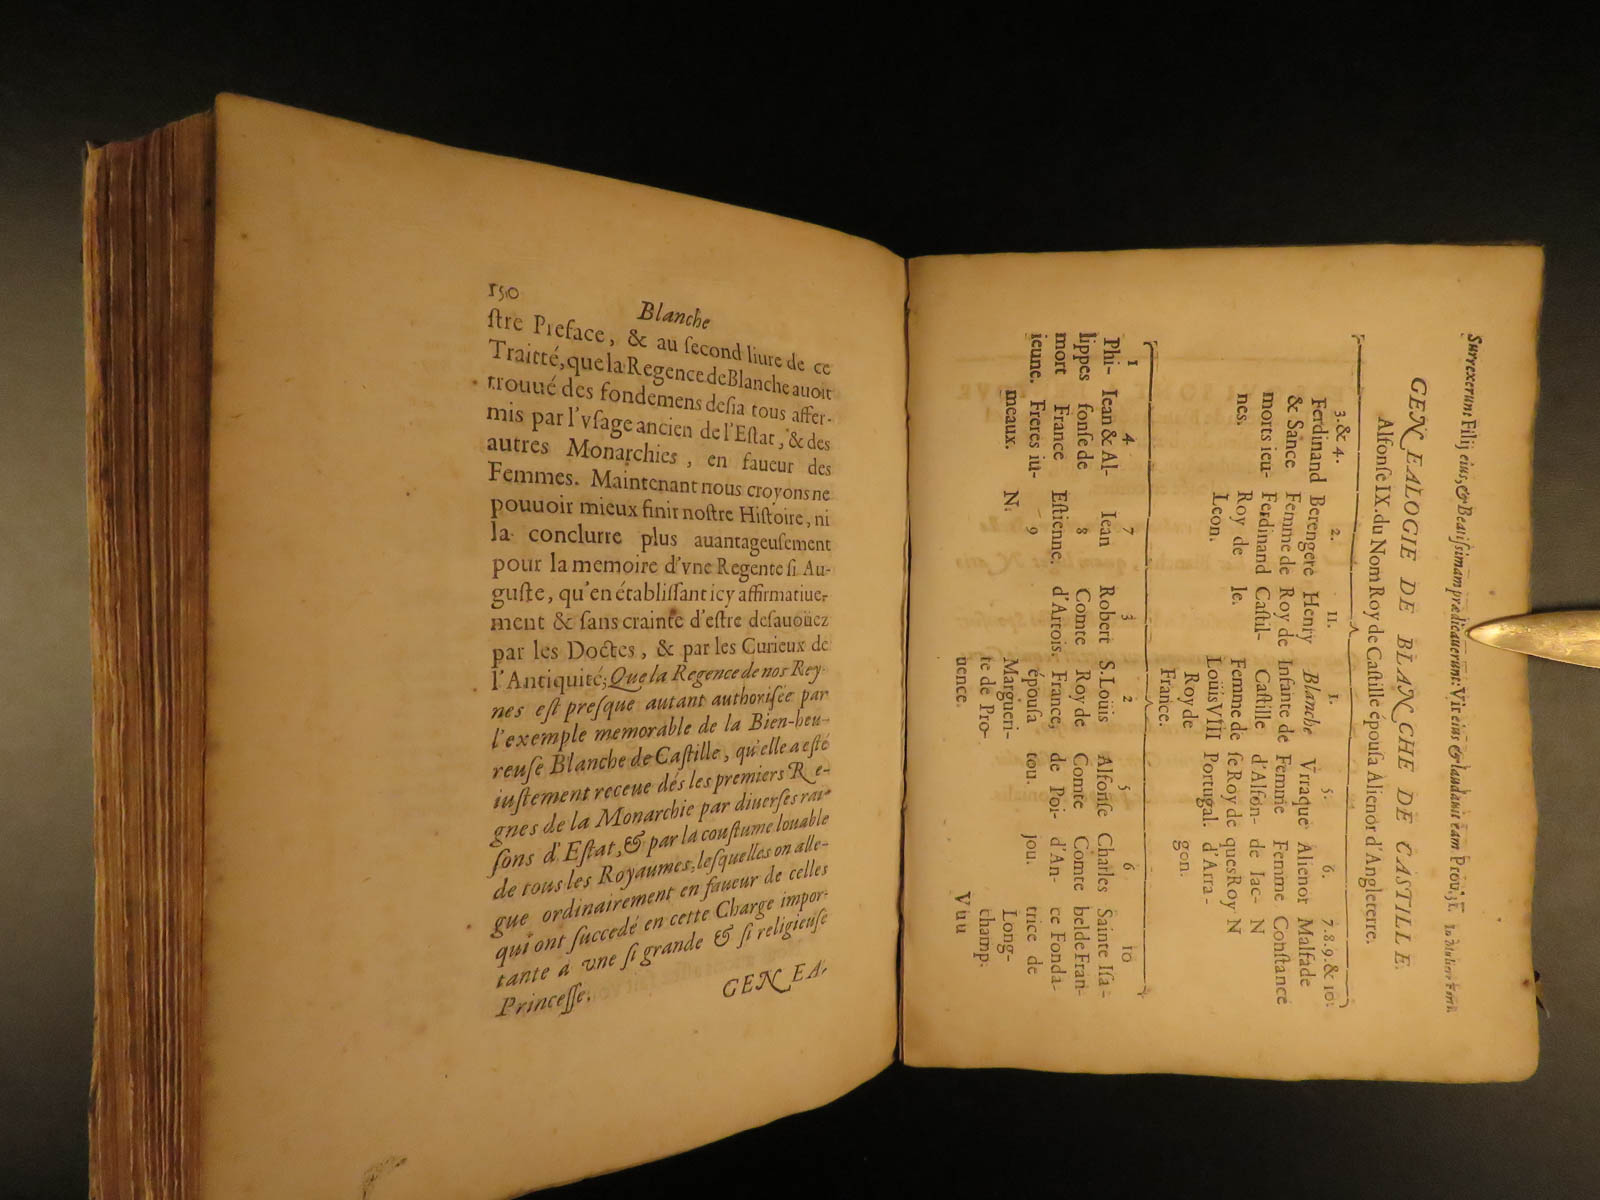 150
Blanche
ſtre Preface, & au ſecond liure de ce
Traitté, que la Regence de Blanche auoit
trouué des fondemens deſia tous affer-
mis par l'vſage ancien de l'Eſtat, & des
autres Monarchies, en faueur des
Femmes. Maintenant nous croyons ne
pouuoir mieux finir noſtre Hiſtoire, ni
la conclurre plus auantageuſement
pour la memoire d'vne Regente ſi Au-
guſte, qu'en établiſſant icy affirmatiue-
ment & ſans crainte d'eſtre deſauoüez
par les Doctes, & par les Curieux de
l'Antiquité; Que la Regence de nos Rey-
nes eſt preſque autant authoriſée par
l'exemple memorable de la Bien-heu-
reuſe Blanche de Caſtille, qu'elle a eſté
iuſtement receue dés les premiers Re-
gnes de la Monarchie par diuerſes rai-
ſons d'Eſtat, & par la couſtume louable
de tous les Royaumes, leſquelles on alle-
gue ordinairement en faueur de celles
qui ont ſuccedé en cette Charge impor-
tante à vne ſi grande & ſi religieuſe
Princeſſe.
GENEA-
Surrexerunt Filij eius, & Beatiſsimam prædicauerunt: Vir eius & laudauit eam Prou. 31.
GENEALOGIE DE BLANCHE DE CASTILLE.
Alfonſe IX. du Nom Roy de Caſtille épouſa Alienor d'Angleterre.
3. & 4.
Ferdinand
& Sance
morts ieu-
nes.
2.
Berengere
Femme de
Ferdinand
Roy de
Leon.
11.
Henry
Roy de
Caſtil-
le.
1.
Blanche
Infante de
Caſtille
Femme de
Loüis VIII
Roy de
France.
5.
Vrraque
Femme
d'Alfon-
ſe Roy de
Portugal.
6.
Alienor
Femme
de Iac-
ques Roy
d'Arra-
gon.
7. 8. 9. & 10.
Malfade
Conſtance
N
N
1
Phi-
lippes
mort
ieune.
4.
Iean & Al-
fonſe de
France
Freres iu-
meaux.
7
Iean
8
Eſtienne.
9
N.
3
Robert
Comte
d'Artois.
2
S. Loüis
Roy de
France,
épouſa
Margueri-
te de Pro-
uence.
5
Alfonſe
Comte
de Poi-
tou.
6
Charles
Comte
d'An-
jou.
10
Sainte Iſa-
bel de Fran-
ce Fonda-
trice de
Long-
champ.
Vuu